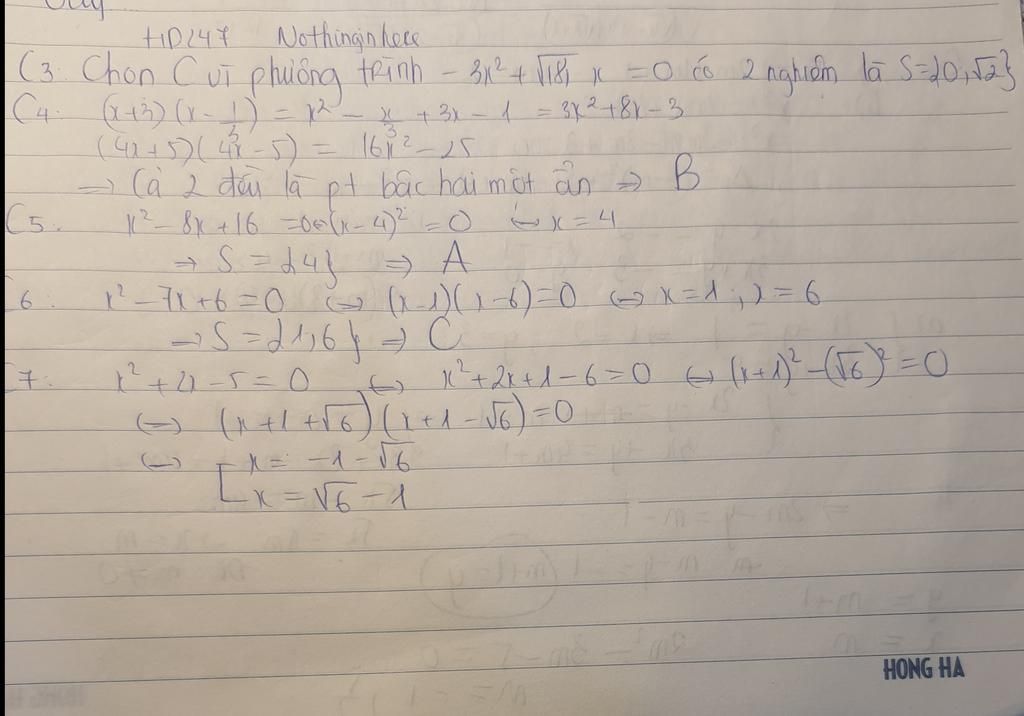 HD247 Nothinginhere
C3. Chọn C vì phương trình -3x² + √18 x = 0 có 2 nghiệm là S={0,√2}
C4: (x+3)(x - 1/3) = x² - x/3 + 3x - 1 = 3x² + 8x - 3
(4x+5)(4x-5) = 16x² - 25
=> Cả 2 đều là pt bậc hai một ẩn => B
C5. x² - 8x + 16 = 0 <=> (x-4)² = 0 <=> x = 4
=> S = {4} => A
6: x² - 7x + 6 = 0 <=> (x-1)(x-6) = 0 <=> x = 1; x = 6
=> S = {1;6} => C
7: x² + 2x - 5 = 0 <=> x² + 2x + 1 - 6 = 0 <=> (x+1)² - (√6)² = 0
<=> (x+1+√6)(x+1-√6) = 0
<=> [ x = -1 - √6
x = √6 - 1
HONG HA